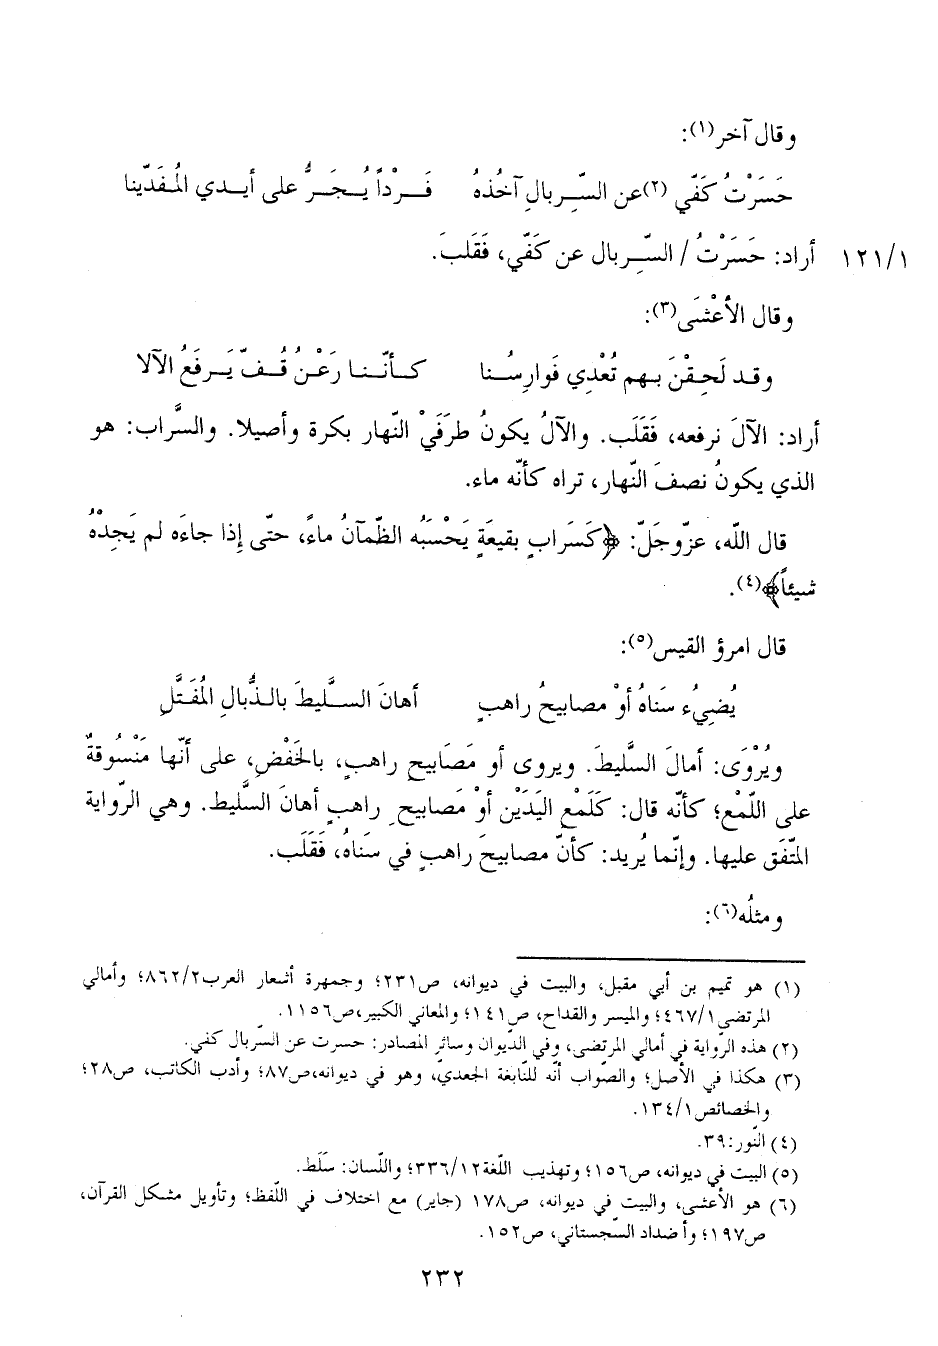 وقال آخر(١):
حَسَرْتُ كَفّي (٢)عن السِّربالِ آخُذهُ فَرْداً يُجَرُّ على أيدي المُفَدّينا
١٢١/١ أراد: حَسَرْتُ / السِّربال عن كَفّي، فَقَلبَ.
وقال الأعْشَى(٣):
وقد لَحِقْنَ بهم تُعْدِي فَوارِسُنا كأنّنا رَعْنُ قُفّ يَرفَعُ الآلا
أراد: الآلَ نرفعه، فَقَلَب. والآلُ يكونُ طرَفَيْ النّهار بكرة وأصيلا. والسَّراب: هو
الذي يكونُ نصفَ النّهار، تراه كأنّه ماء.
قال اللّه، عزّوجَلّ: ﴿كَسَرابٍ بقيعَةٍ يَحْسَبُه الظّمآنُ ماءً، حتّى إذا جاءَه لم يَجِدْهُ
شيئاً﴾(٤).
قال امرؤ القيس(٥):
يُضِيُء سَناهُ أوْ مصابيحُ راهبٍ أهانَ السَّليطَ بالذُّبالِ المُفَتَّلِ
ويُرْوَى: أمالَ السَّليطَ. ويروى أو مَصَابيحِ راهبٍ، بالخَفْضِ، على أنّها مَنْسُوقةٌ
على اللّمْع؛ كأنّه قال: كَلَمْعِ اليَدَيْن أوْ مَصابيحِ راهبٍ أهانَ السَّليط. وهي الرّواية
المتّفَق عليها. وإنّما يُريد: كأنّ مصابيحَ راهبٍ في سَناهُ، فَقَلَب.
ومثلُه(٦):
(١) هو تميم بن أبي مقبل، والبيت في ديوانه، ص٢٣١؛ وجمهرة أشعار العرب٨٦٢/٢؛ وأمالي
المرتضى٤٦٧/١؛ والميسر والقداح، ص١٤١؛ والمعاني الكبير،ص١١٥٦.
(٢) هذه الرّواية في أمالي المرتضى، وفي الدّيوان وسائر المصادر: حسرت عن السّربال كفي.
(٣) هكذا في الأصل؛ والصّواب أنّه للنّابغة الجعديّ، وهو في ديوانه،ص٨٧؛ وأدب الكاتب، ص٢٨؛
والخصائص١٣٤/١.
(٤) النّور:٣٩.
(٥) البيت في ديوانه، ص١٥٦؛ وتهذيب اللّغة٣٣٦/١٢؛ واللّسان: سَلَط.
(٦) هو الأعشى، والبيت في ديوانه، ص١٧٨ (جاير) مع اختلاف في اللّفظ؛ وتأويل مشكل القرآن،
ص١٩٧؛ وأضداد السّجستاني، ص١٥٢.
٢٣٢